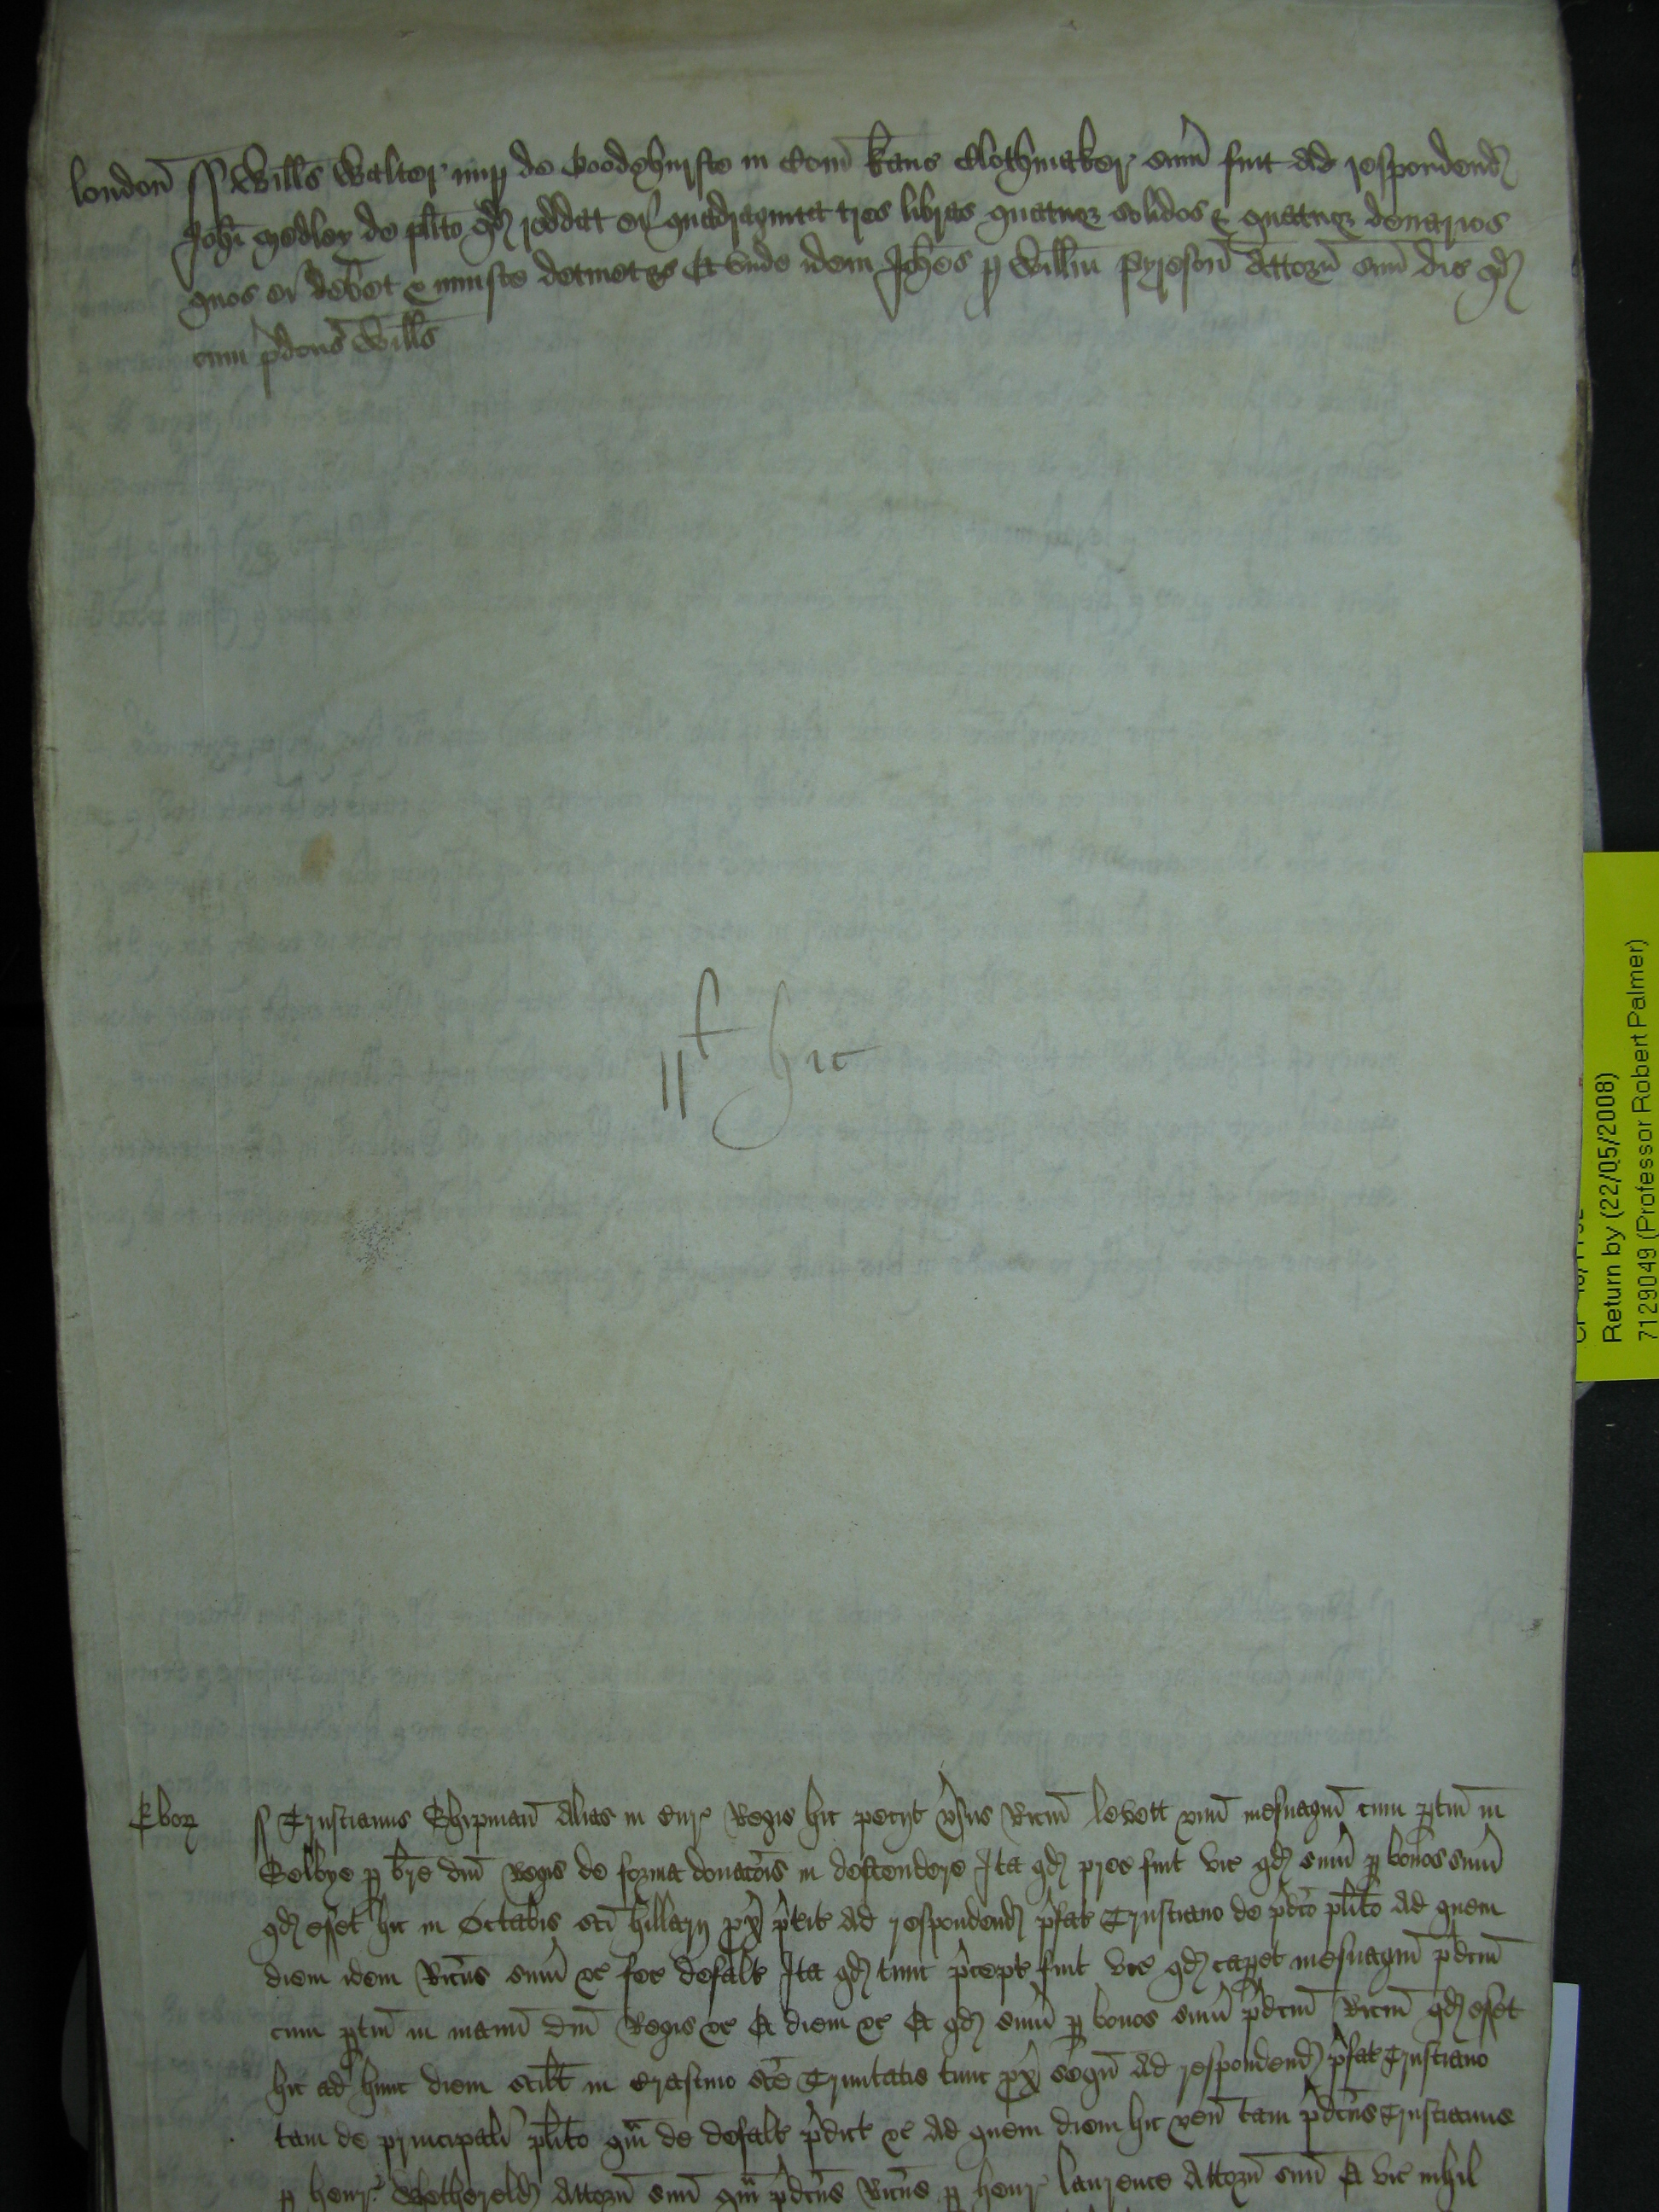 london̄ ss Willūs Walter nup de Goodehurste in Com̄ kanc Clothmaker sum̄ fuit ad respondend
Joh̄i Medley de pl̄ito qd reddat ei quadraginta tres libras quatuor solidos & quatuor denarios
quos ei debet & iniuste detinet &c Et vnde idem Joh̄es p Will̄m Pyreson̄ Attorn̄ suū dic qd
cum p̄dcūs Will̄s
hic
Ebor ss Tristianus Chipman̄ alias in Cur Regis hic petijt v̄sus Ric̄m levett vnū mesuagiū cum ptin̄ in
Selbye p br̄e dn̄i Regis de forma donacōis in descendere Ita qd prec fuit vic qd sum̄ p bonos sum̄
qd esset hic in Octabis sc̄i hillarij px̄ p̄terit ad respondend p̄fat Tristiano de p̄dc̄o pl̄ito ad quem
diem idem Ric̄us sum̄ &c fec defalt Ita qd tunc p̄cept fuit vic qd capet mesuagiū p̄dc̄m
cum ptin̄ in manū dn̄i Regis &c Et diem &c Et qd sum̄ p bonos sum̄ p̄dc̄m Ric̄m qd esset
hic ad hunc diem scil̄t in Crastino sc̄e Trinitatis tunc px̄ seqū ad respondend p̄fat Tristiano
tam de principali pl̄ito qm̄ de defalt p̄dict &c ad quem diem hic ven̄ tam p̄dc̄us Tristianus
p henr Wethereld Attorn̄ suū qm̄ p̄dc̄us Ric̄us p henr laurence Attorn̄ suū Et vic nihil
Return by (22/05/2008)
7129049 (Professor Robert Palmer)